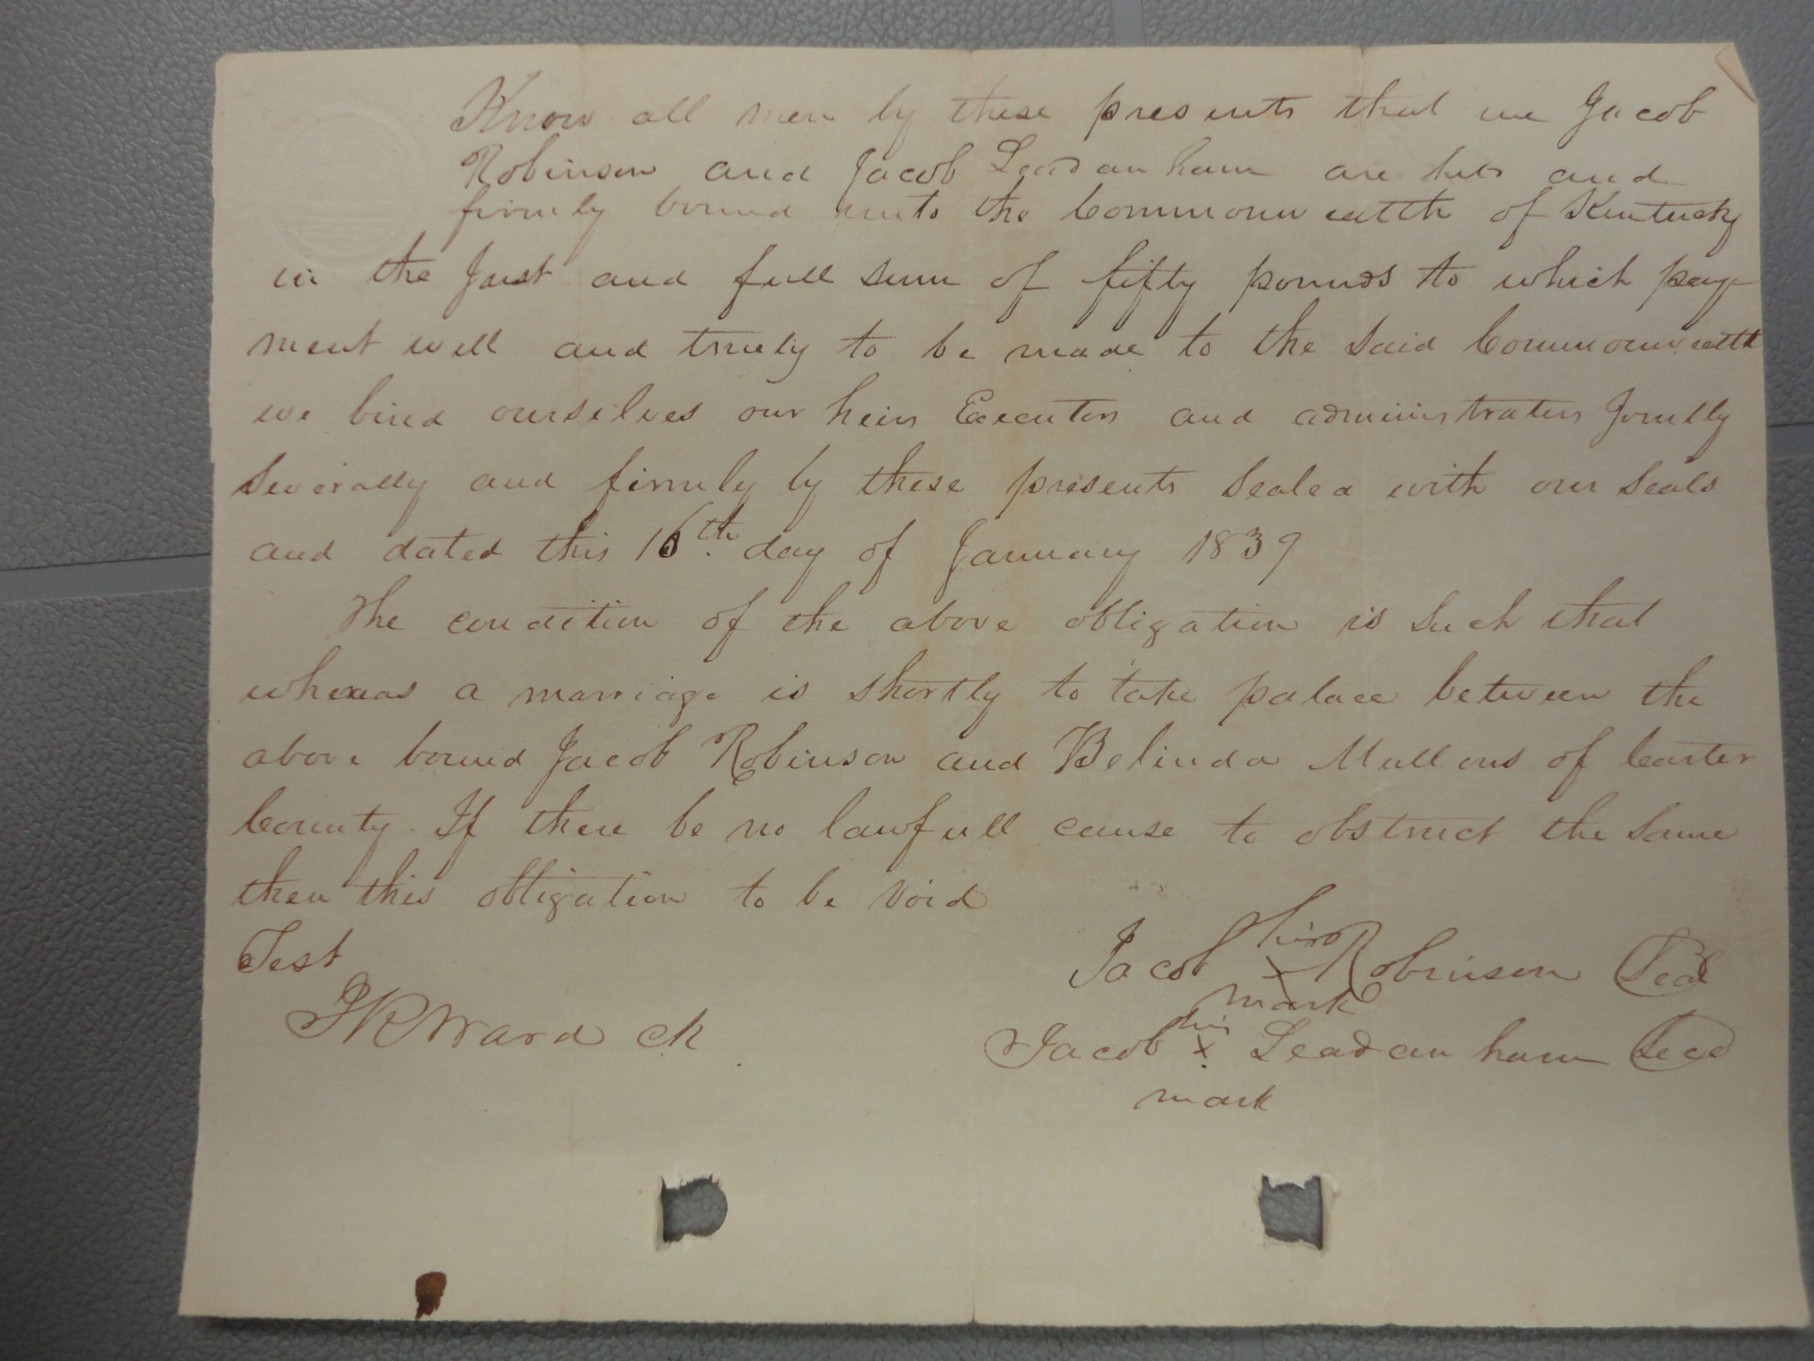 Know all men by these presents that we Jacob
Robinson and Jacob Leadanham are held and
firmly bound unto the Commonwealth of Kentucky
in the Just and full sum of fifty pounds to which pay-
ment well and truely to be made to the said Commonwealth
we bind ourselves our heirs Executors and administrators Jointly
Severally and firmly by these presents Sealed with our Seals
and dated this 16th. day of January 1839
The condition of the above obligation is such that
whereas a marriage is shortly to take palace between the
above bound Jacob Robinson and Belinda Mullens of Carter
County. If there be no lawfull cause to obstruct the same
then this obligation to be void
Test
Jacob his x mark Robinson Seal
Ward ck
Jacob his x mark Leadanham Seal